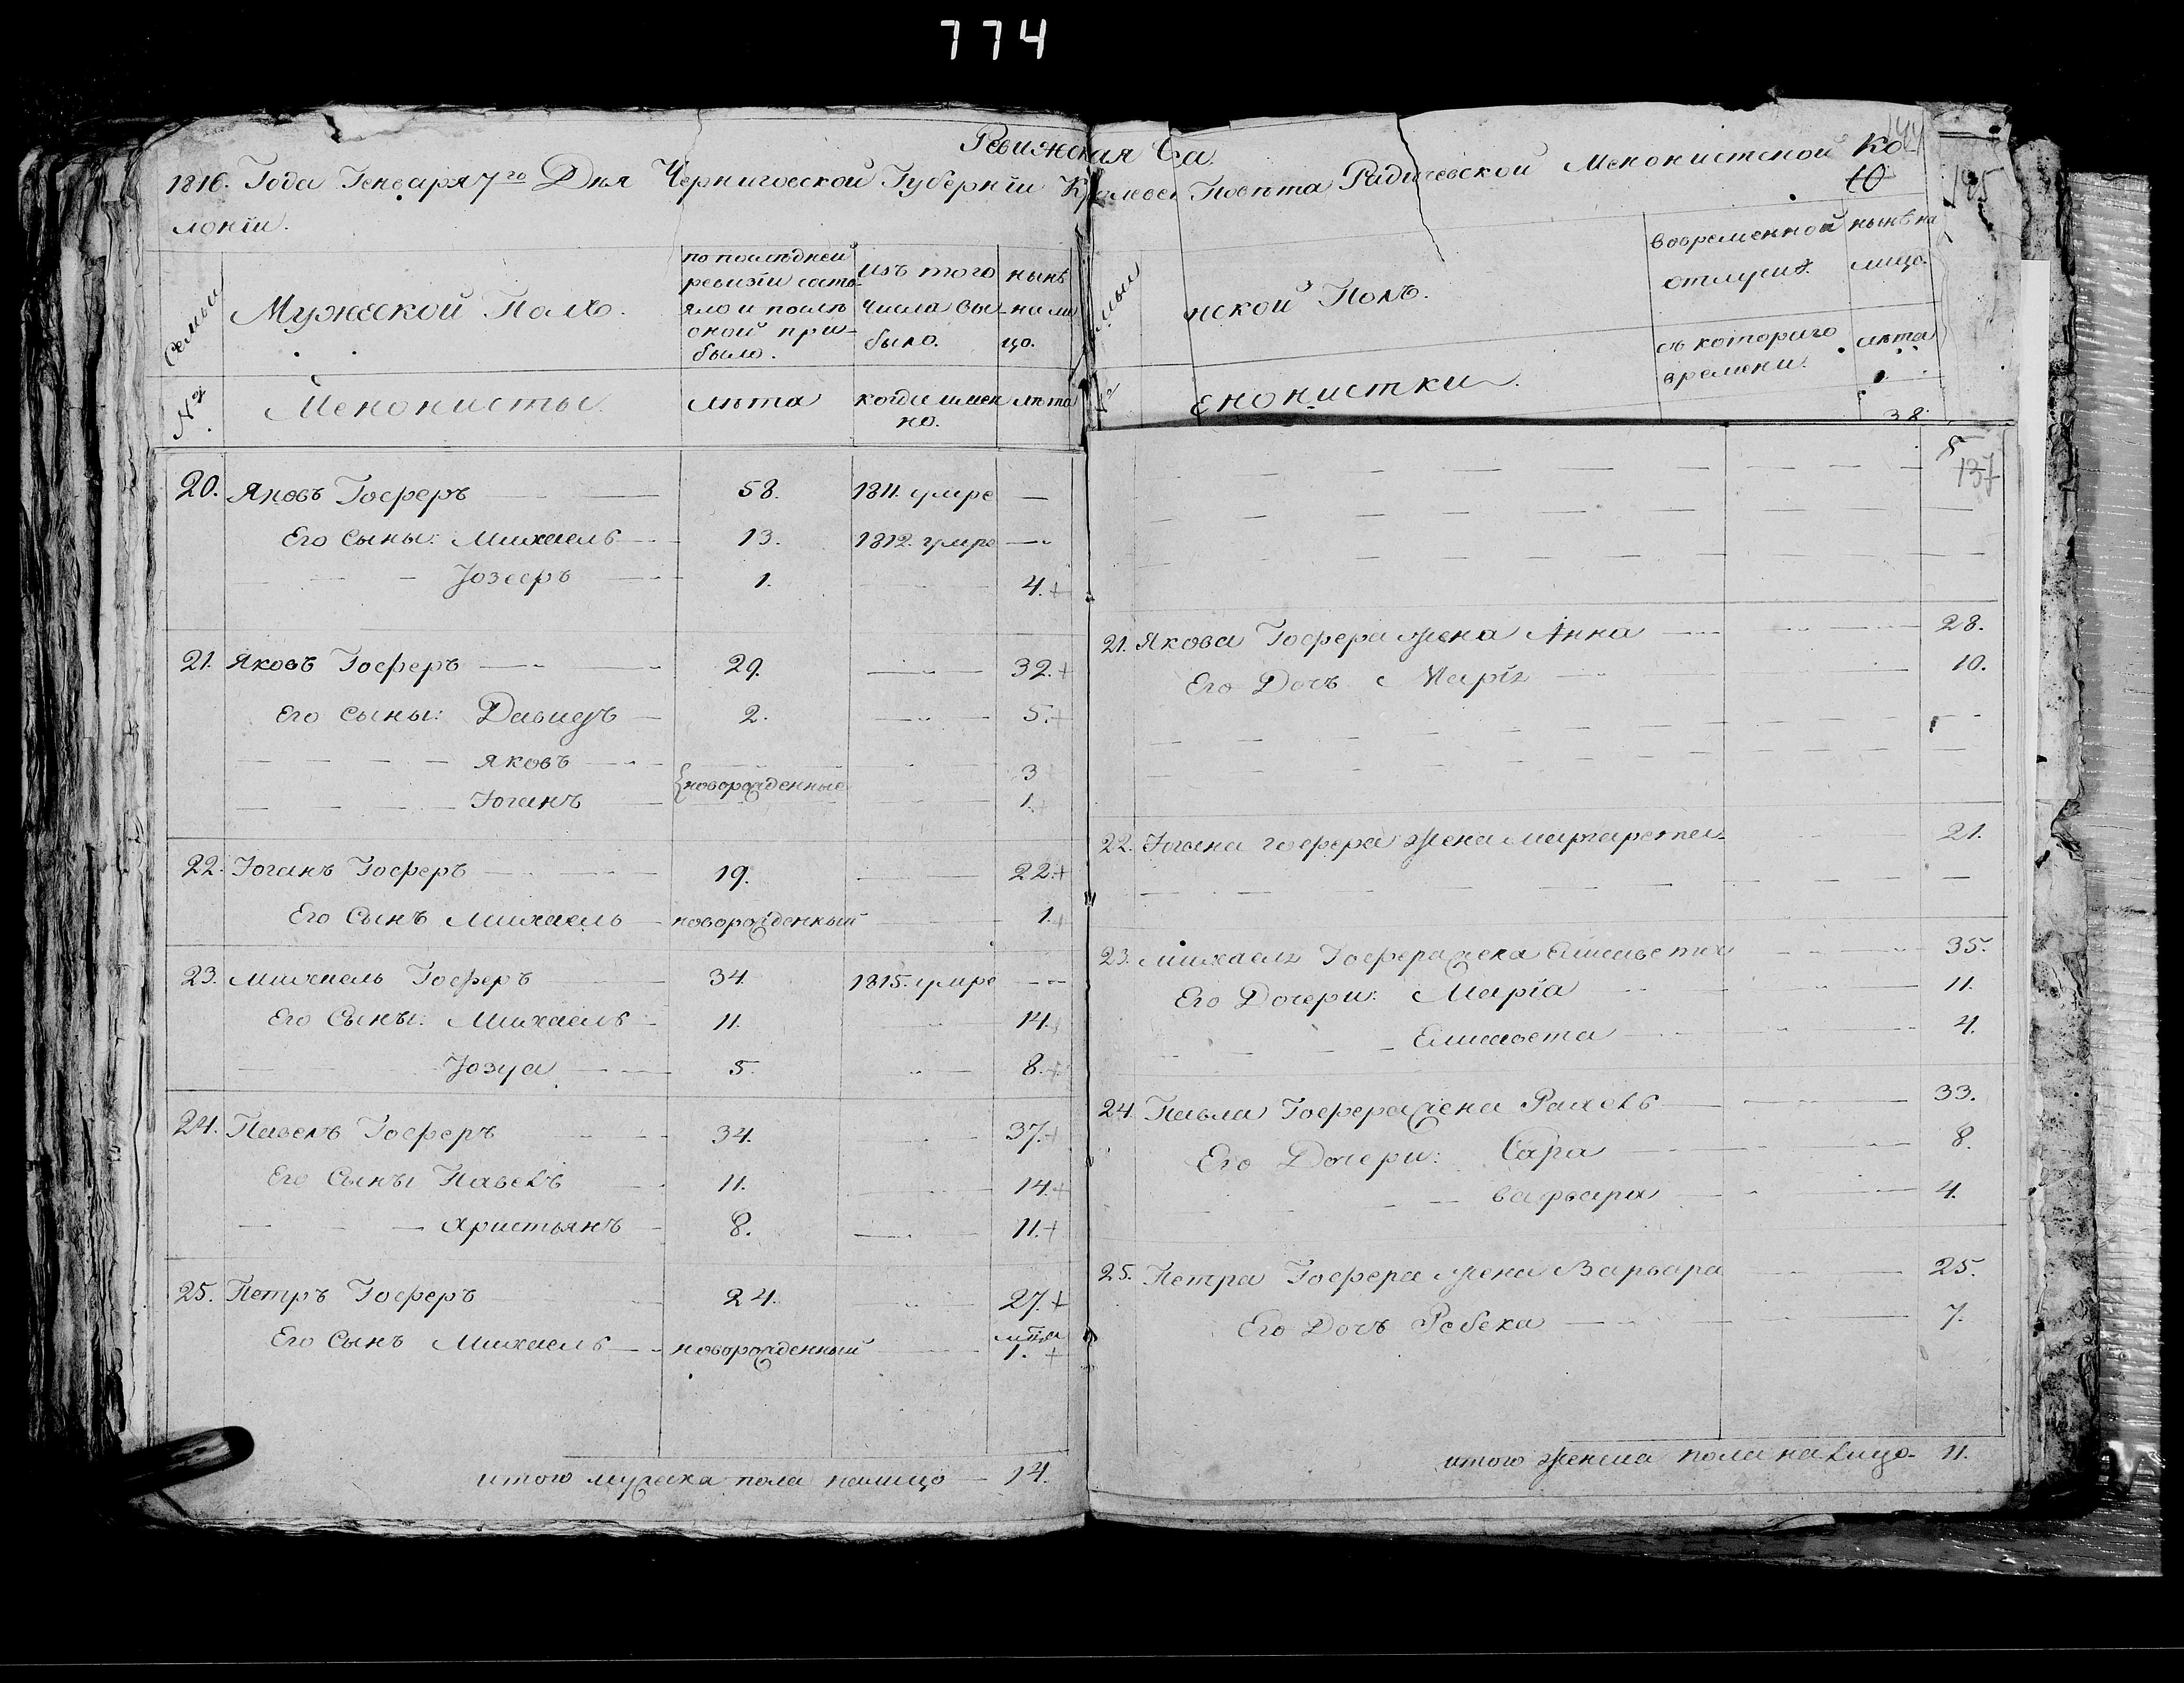 774
Ревижская Ска.
1816. Года Генваря 7го Дня Черниговской Губернїи Повѣта Радичевской Менонистской Ко
лонїи.
144
10
Семьи
Мужеской Полъ.
по послѣдней
ревизїи состо
яло и послѣ
оной при
было.
изъ того
числа вы
было.
нынѣ
на ли
цо.
№
Менонисты.
лѣта
когда имен
но.
лѣта
20. Яковъ Госферъ 58. 1811. умре
Его Сыны: Михаель 13. 1812. умре
Jозефъ 1. 4.+
21. Яковъ Госферъ 29. 32.+
Его Сыны: Давидъ 2. 5.+
Яковъ 3
{новорожденные
Јоганъ 1.+
22. Јоганъ Госферъ 19. 22.+
Его Сынъ Михаель новорожденный 1.+
23. Михаель Госферъ 34. 1815. умре
Его Сыны: Михаель 11. 14.+
Jозуа 5. 8.+
24. Павелъ Госферъ 34. 37.+
Его Сыны Павелъ 11. 14.+
Христьянъ 8. 11.+
25. Петръ Госферъ 24. 27.+
Его Сынъ Михаель новорожденный 1.+
итого мужеска пола налицо 14.
нской Полъ.
вовременной
отлучкѣ.
нынѣ на
лицо.
съ котораго
времени.
лѣта
енонистки.
38.
137
21. Якова Госфера жена Анна 28.
Его Дочь Марїя 10.
22. Јогана Госфера жена Маргарета 21.
23. Михаеля Госфера жена Елисавета 35.
Его Дочери: Марїа 11.
Елисавета 4.
24. Павла Госфера жена Рахель 33.
Его Дочери: Сара 8.
Варвара 4.
25. Петра Госфера жена Варвара 25.
Его Дочь Ребека 7.
итого женска пола на лицо. 11.